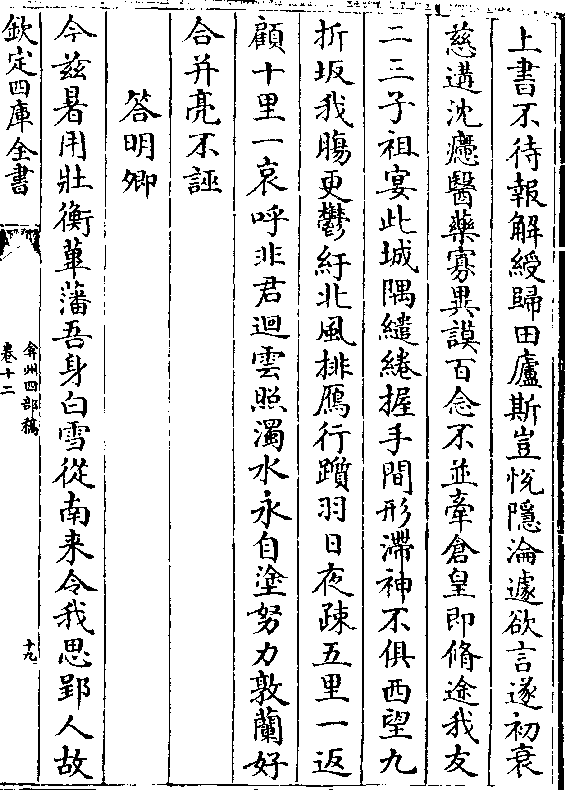 上書不待報解綬歸田廬斯豈悅隱淪遽欲言遂初衰
慈遘沈𤻮醫藥寡異謨百念不並牽倉皇即脩途我友
二三子祖宴此城隅繾綣握手間形滯神不俱西望九
折坂我腸更鬱紆北風排鴈行躓羽日夜疎五里一返
顧十里一哀呼非君迴雲照濁水永自塗努力敦蘭好
合并亮不誣
答明卿
今茲暑用壯衡蓽藩吾身白雪從南来令我思郢人故
欽定四庫全書
弇州四部稿
卷十二
十九